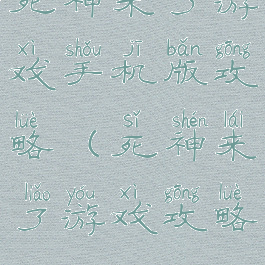 死神来了游
xì shǒu jī bǎn gōng
戏手机版攻
lüè sǐ shén lái
略（死神来
liǎo yóu xì gōng lüè
了游戏攻略